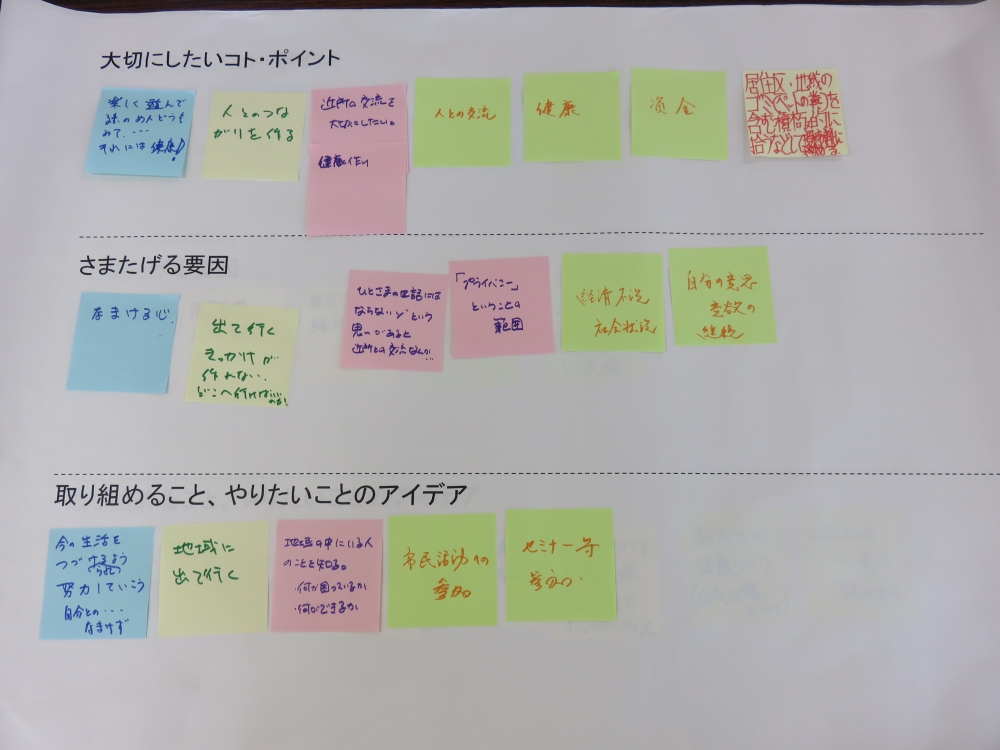 大切にしたいコト・ポイント
楽しく遊んで
まわりの人どうも
みて、・・・
それには健康!
人とのつな
がりを作る
近所の交流を
大切にしたい。
健康作り
人との交流
健康
資金
居住区・地域の
ゴミ
含む積極的に
拾うなどして
さまたげる要因
なまける心
出て行く
きっかけが
作れない。
どこへ行けばいいのか!
ひとさまの世話には
ならないぞという
思いがあると
近所との交流なんか…
「プライバシー」
ということの
範囲
経済不況
社会状況
自分の意思
意欲の
継続
取り組めること、やりたいことのアイデア
今の生活を
つづけるよう
努力していこう
自分との・・・
なまけず
地域に
出て行く
地域の中にいる人
のことを知る。
・何が困っているか
・何ができるか
市民活動への
参加
セミナー等
参加